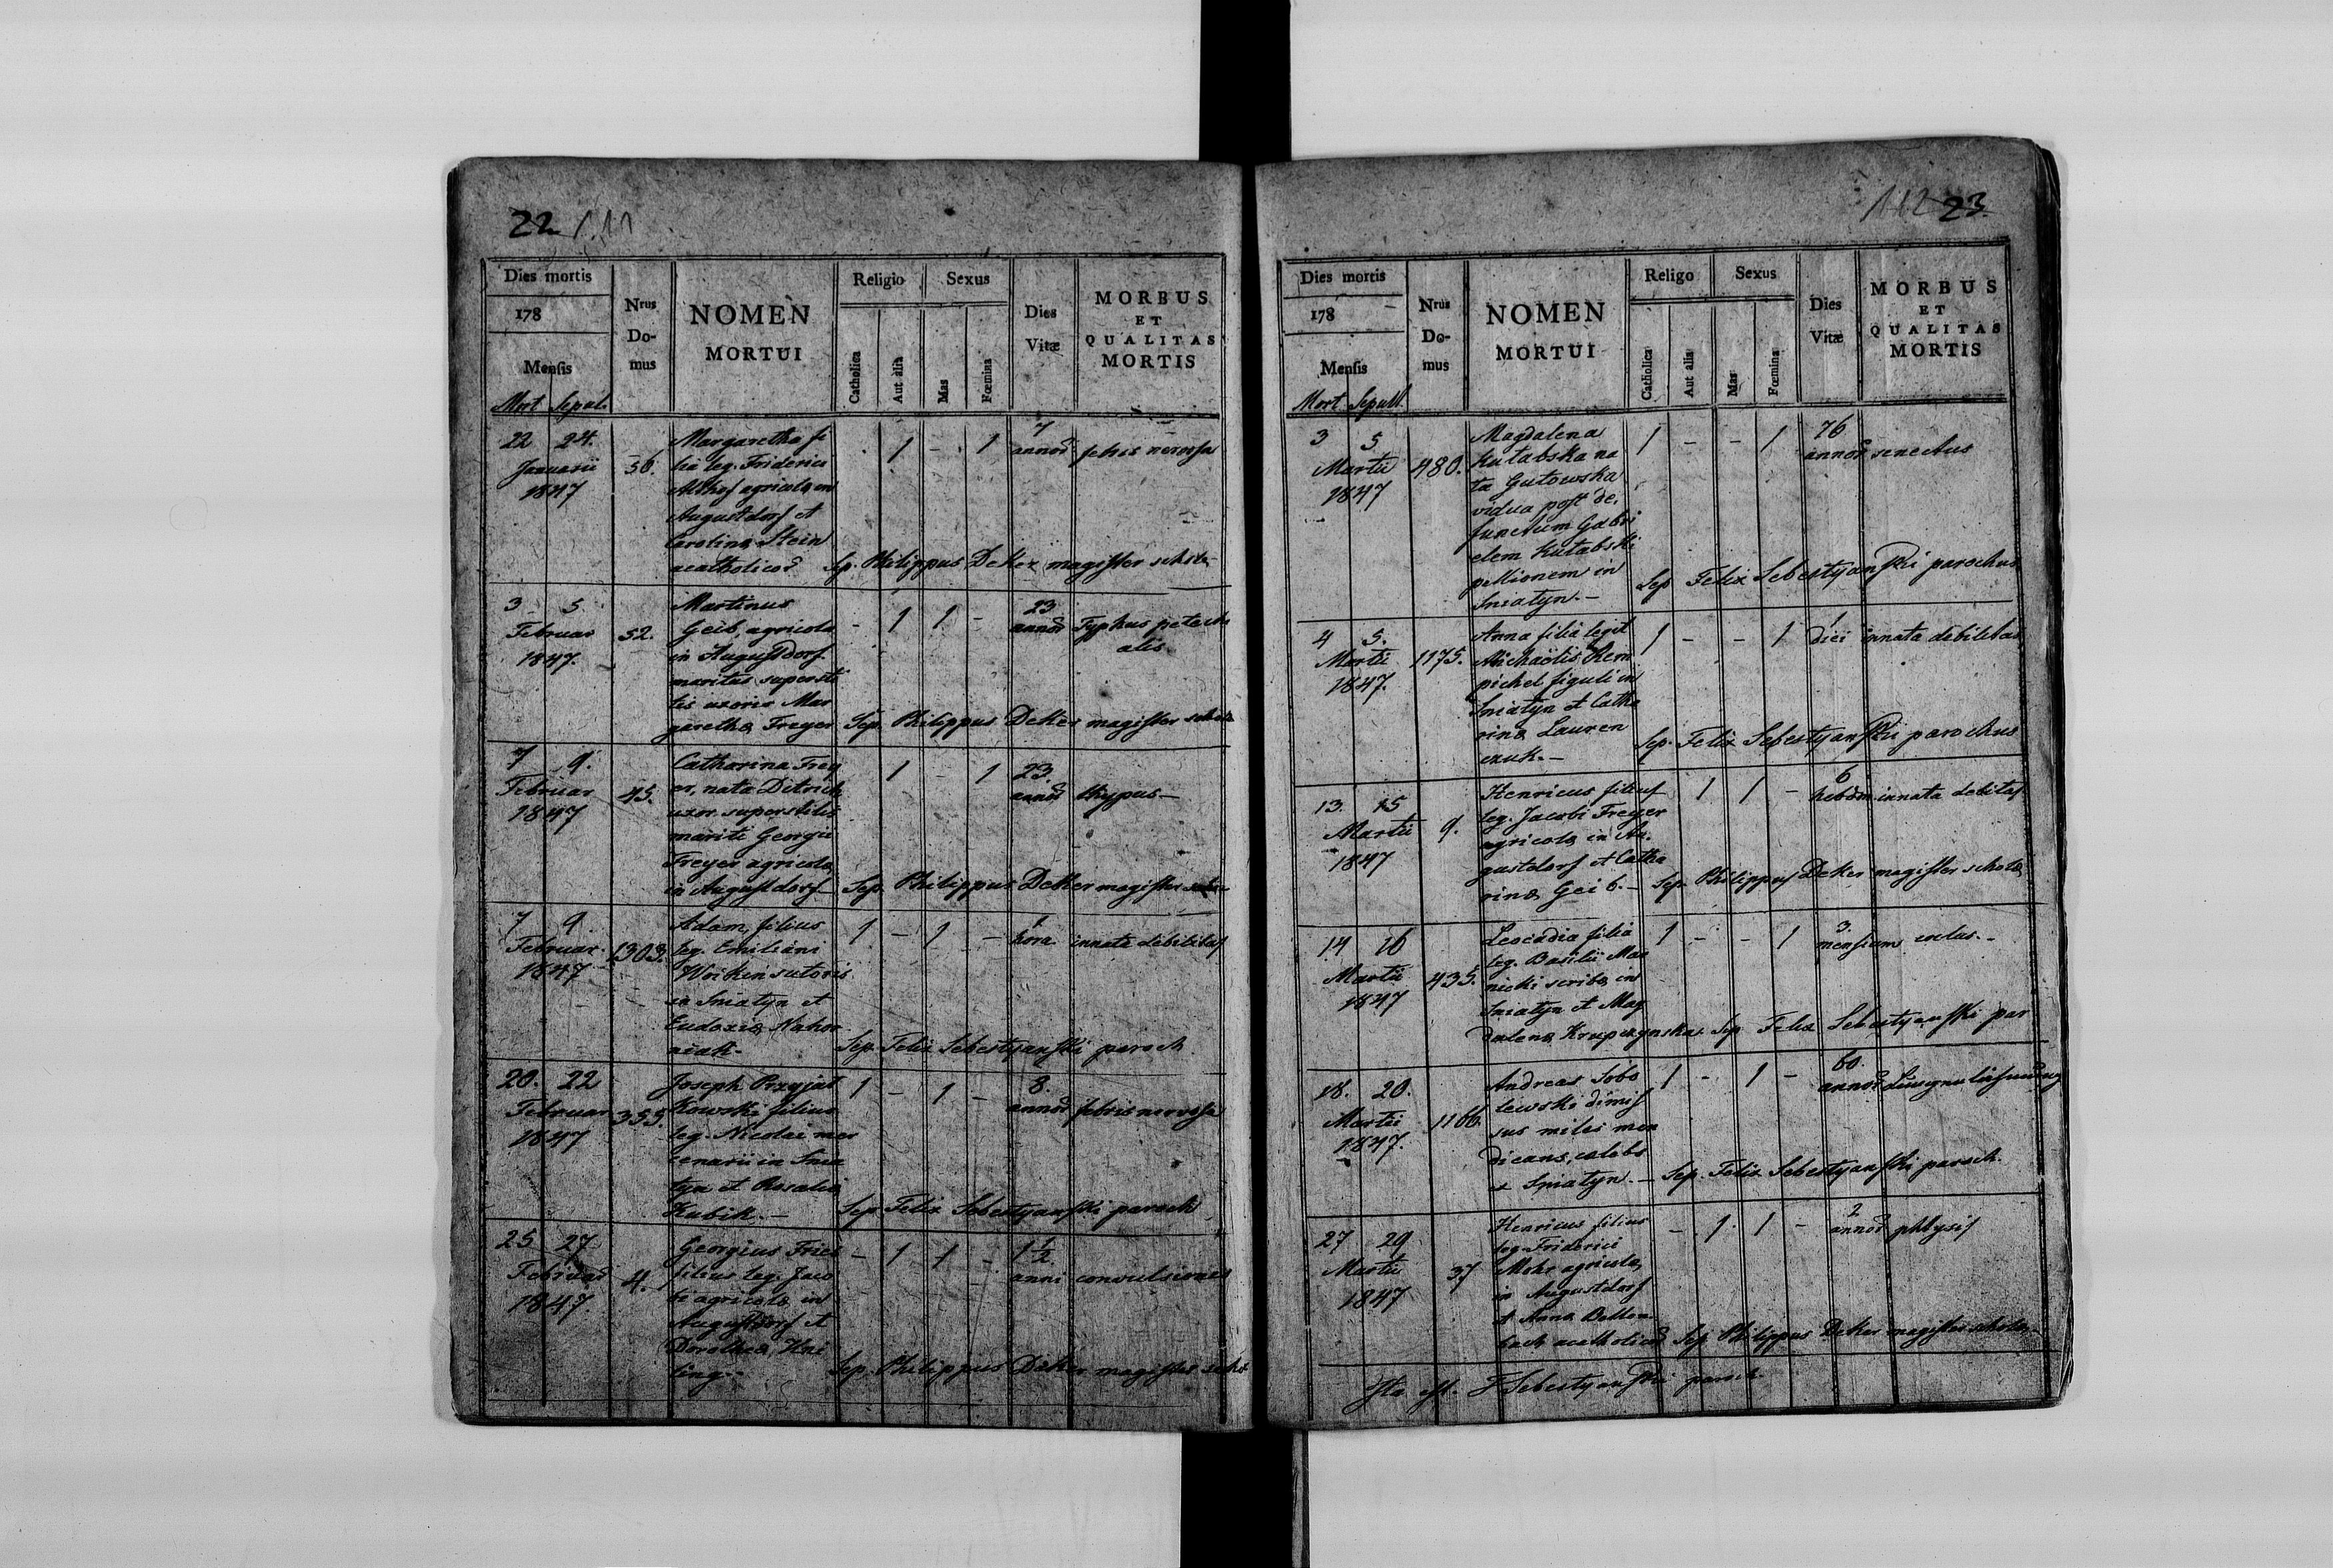 22 111
Dies mortis
178
Mensis
Mort Sepul.
Nrus Do-mus
NOMEN MORTUI
Religio
Catholica
Aut alia
Sexus
Mas
Fœmina
Dies Vitæ
MORBUS ET QUALITAS MORTIS
22 24.
Januarii
1847
56.
Margaretha fi
lia leg. Friderici
Althof agricolæ in
Augustdorf et
Carolinæ Stein
acatholicor
1 - 1
7
annor
febris nervosa
Sep. Philippus Deker magister schola
3 5
Februar
1847.
52.
Martinus
Geib, agricola
in Augustdorf
maritus supersti
tis uxoris Mar
garethæ Freyer
- 1 1 -
23
annor
Typhus petech
alis
Sep. Philippus Deker magister schola
7 9.
Februar
1847
45.
Catharina Frey
er, nata Ditrich
uxor superstitis
mariti Georgii
Freyer agricolæ
in Augustdorf
1 - 1
23.
annor
thypus -
Sep. Philippus Deker magister schola
7 9.
Februar.
1847
1303.
Adam, filius
leg. Emiliani
Woiken sutoris
in Sniatyn et
Eudoxiæ Nahor
niak -
1 - 1 -
1
hora
innata debilitas
Sep. Felix Sebestyanski paroch
20. 22
Februar
1847
355.
Joseph Przyjat
kowski filius
leg. Nicolai mer
cenarii in Snia
tyn et Rosaliæ
Kubik. -
1 - 1 -
8.
annor
febris nervosa
Sep. Felix Sebestyanski paroch
25 27
Februar
1847.
4.
Georgius Fries
filius leg. Jaco
bi agricolæ in
Augustdorf et
Dorotheæ
ling -
- 1 1 -
1 1/2
anni
convulsiones
Sep. Philippus Deker magister schol
112 23.
Dies mortis
178
Mensis
Mort. Sepult.
Nrus Do-mus
NOMEN MORTUI
Religo
Catholica
Aut alia
Sexus
Mas
Fœmina
Dies Vitæ
MORBUS ET QUALITAS MORTIS
3 5
Martii
1847
480.
Magdalena
Kutabska na
ta Gutowska
vidua post de,
functum Gabri
elem Kutabski
pellionem in
Sniatyn. -
1 - - 1
76
annor
senectus
Sep Felix Sebestyanski parochus
4 5.
Martii
1847.
1175.
Anna filia legit
Michaëlis Rem
pichel figuli in
Sniatyn et Catha
rinæ Lauren
czuk. -
1 - - 1
1
diei
innata debilitas
Sep. Felix Sebestyanski parochus
13. 15
Martii
1847
9.
Henricus filius
leg. Jacobi Freyer
agricolæ in Au.
gustdorf et Catha
rinæ Geib. -
1 1 -
6
hebdom
innata debitas
Sep. Philippus Deker magister schola
14 16
Martii
1847
435.
Leocadia filia
leg. Basilii Mar
nicki scribæ in
Sniatyn et Mag
dalenæ Krupczynska.
1 - - 1
3.
mensium
Sep Felix Sebestyanski par
18. 20.
Martii
1847.
1166.
Andreas Sobo
lewski dimis
sus miles men
dicans, cælebs
e Sniatyn. -
1 - 1 -
60.
annor
Sep. Felix Sebestyanski paroch.
27 29
Martii
1847
37
Henricus filius
leg. Friderici
Mohr agricolæ
in Augustdorf
et Annæ Bethen
bach acatholicor
- 1 1 -
2
annor
phtysis
Sep. Philippus Deker magister schola
Ita est. F Sebestyanski paroch.